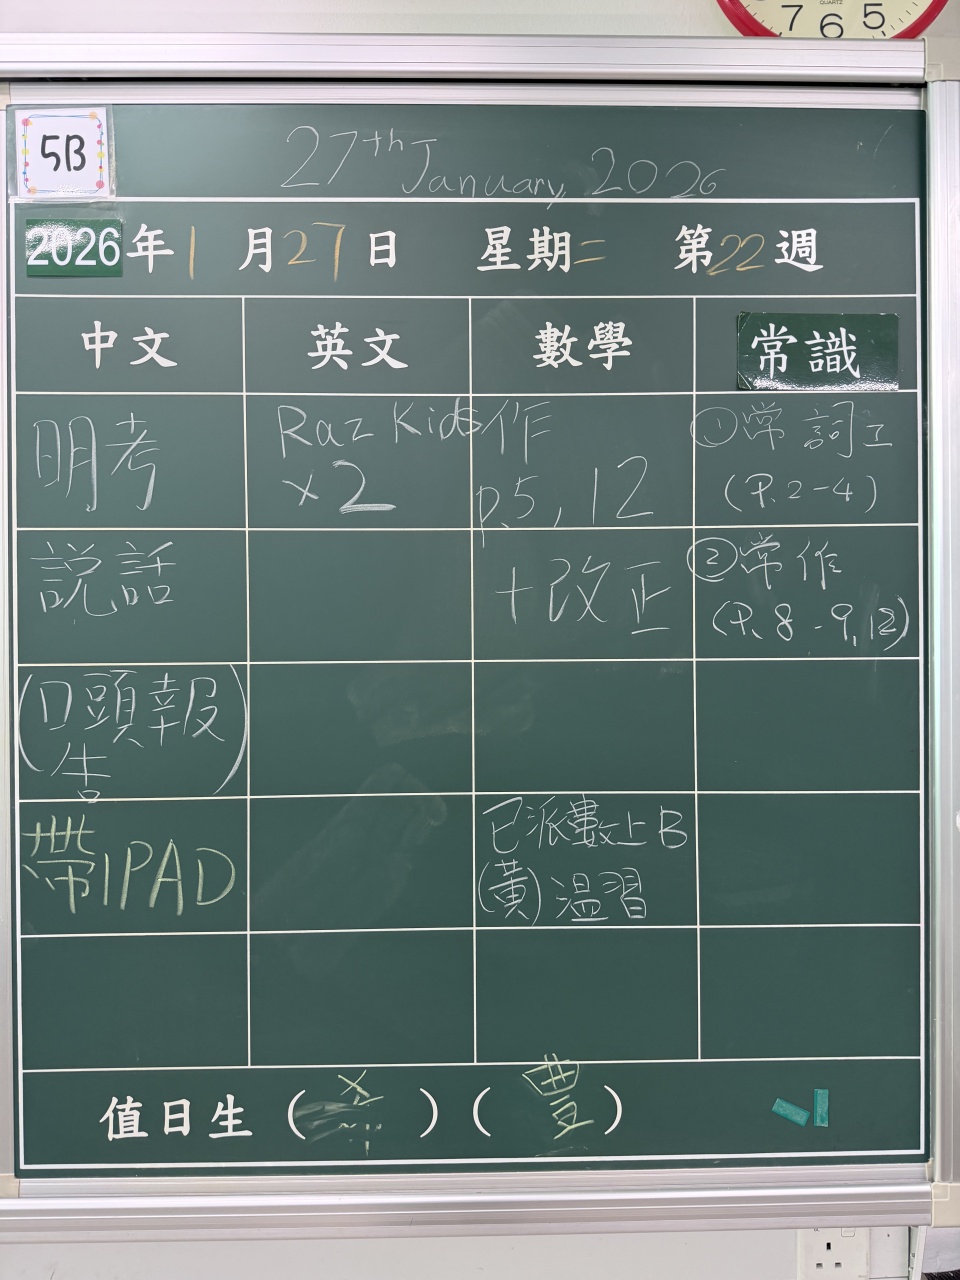 7 6 5
QUARTZ
5B
27th January, 2026
2026年1月27日 星期二 第22週
中文 英文 數學 常識
明考
説話
(口頭報
告)
帶IPAD
Raz Kids
x2
作
p.5, 12
+改正
已派數上B
(黃)溫習
①常詞工
(P.2-4)
②常作
(P.8-9,12)
值日生( )(豐)